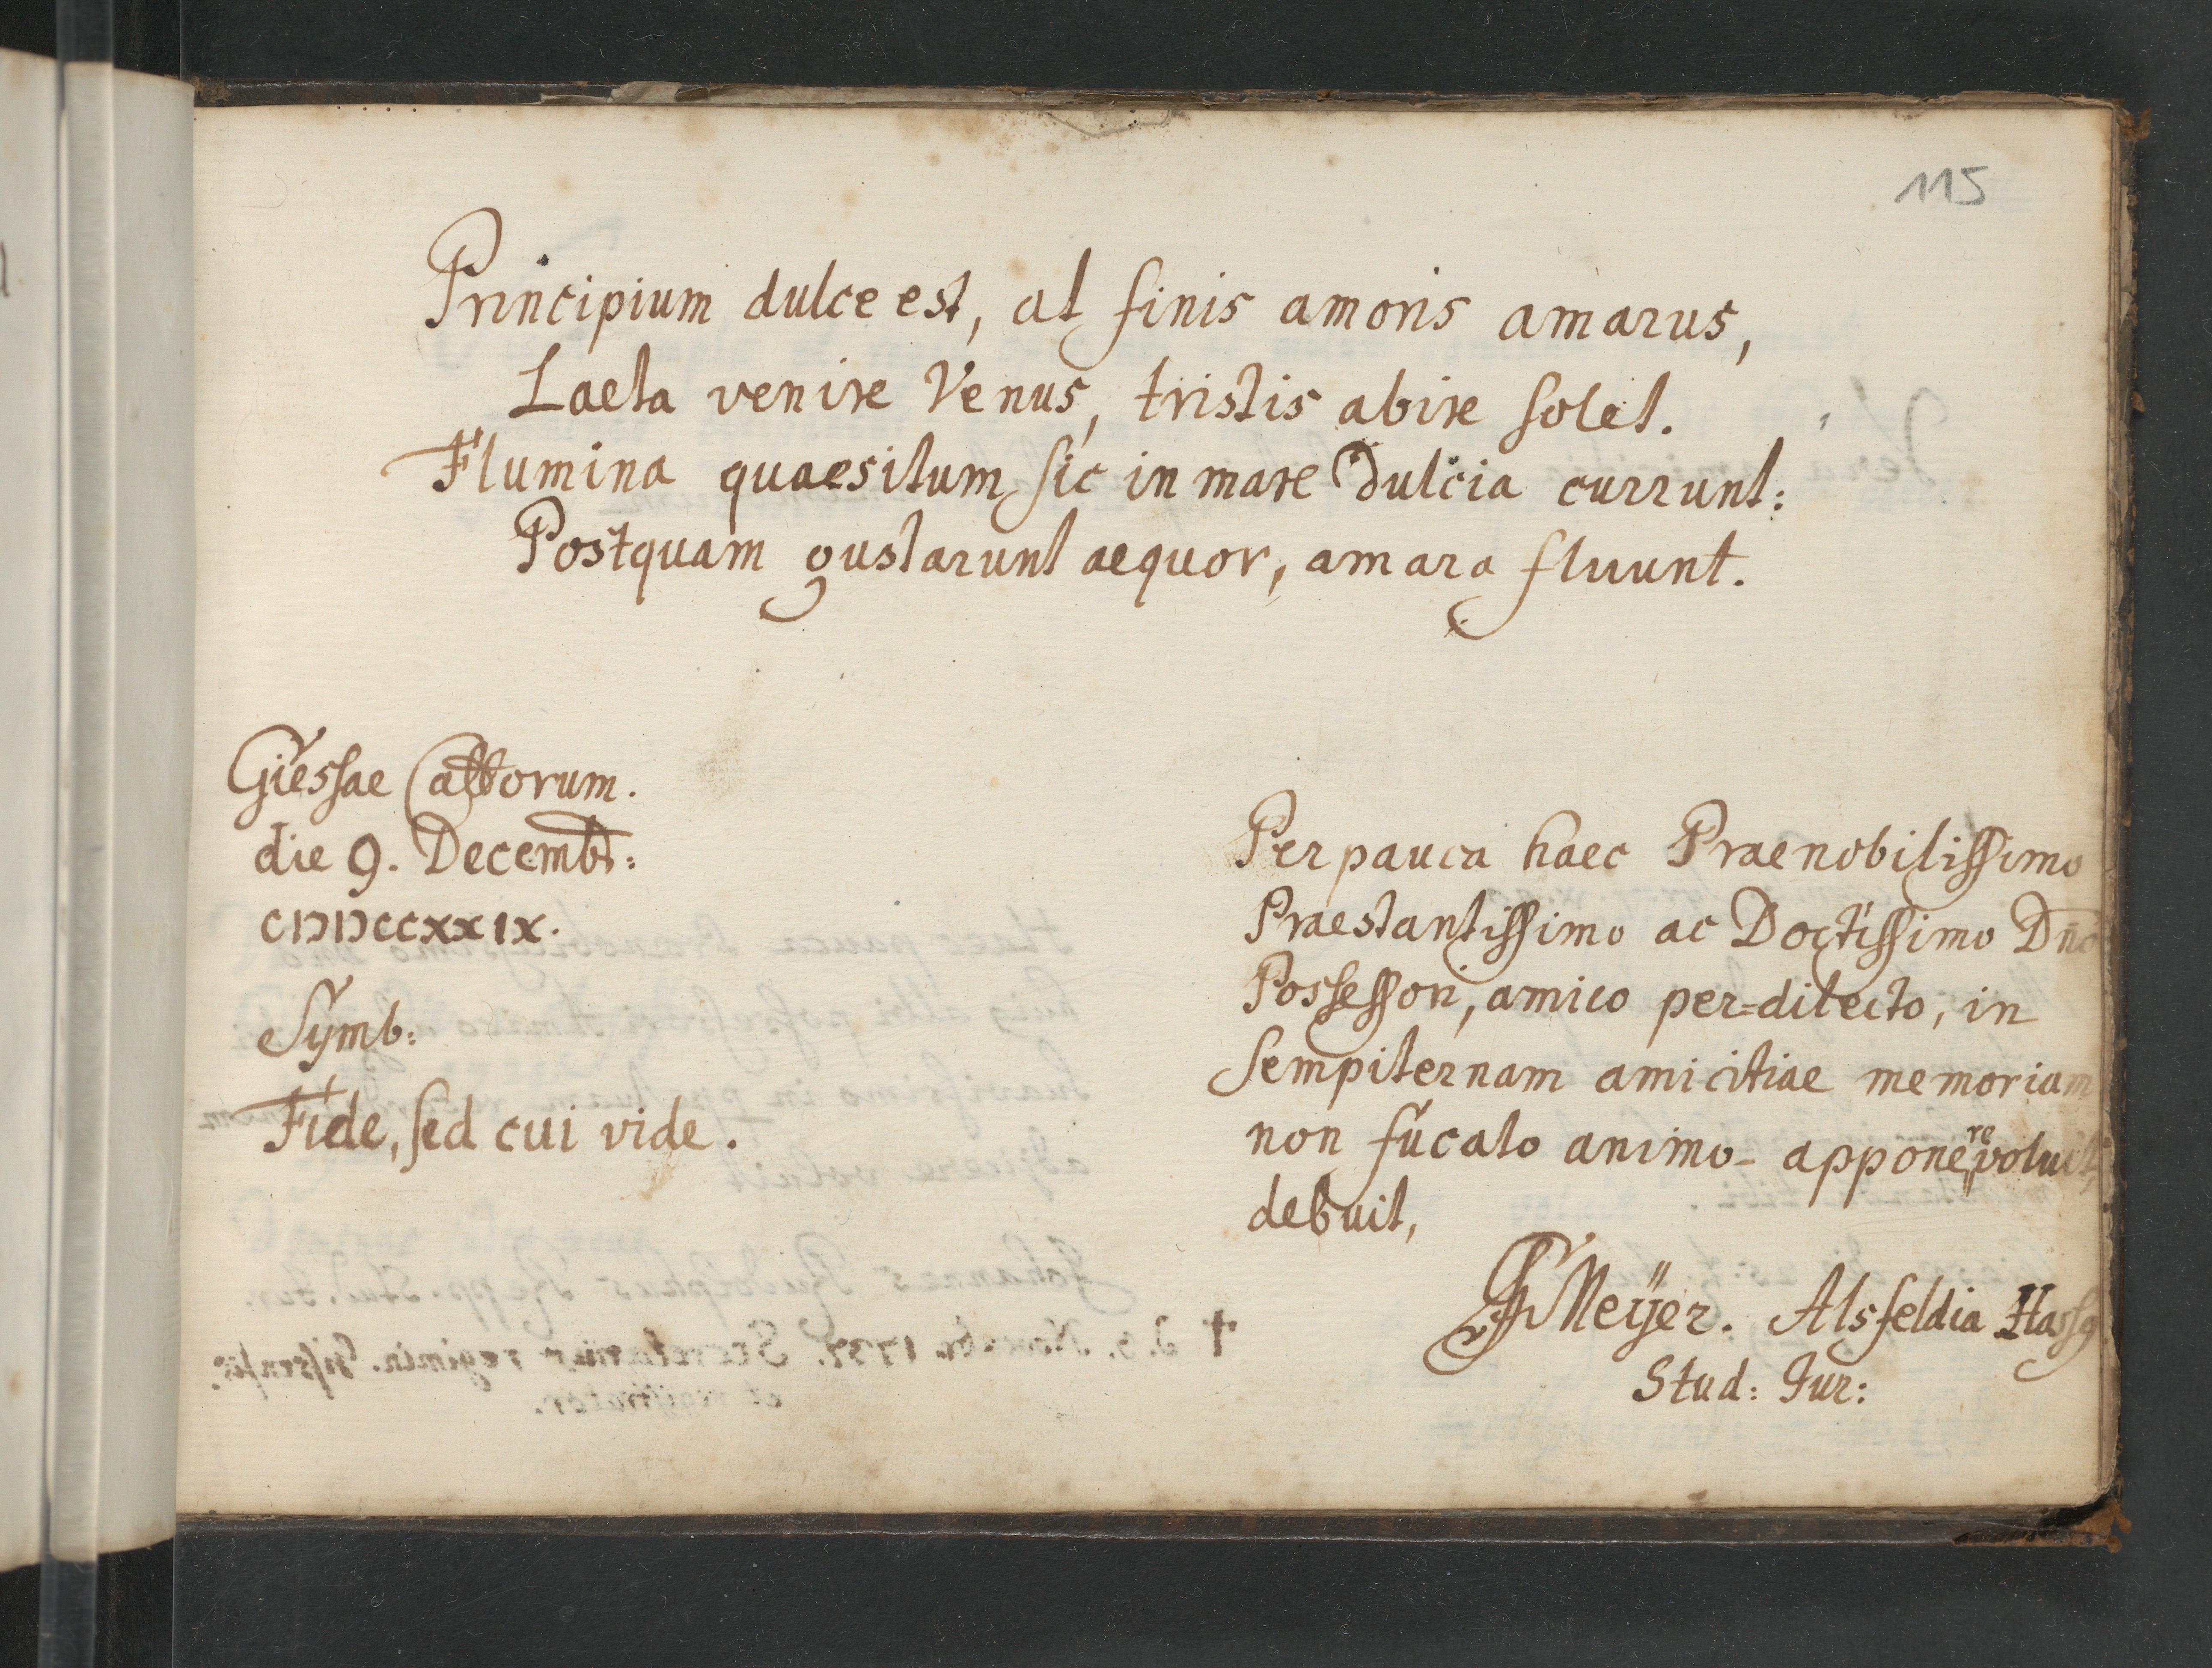 115
Principium dulce est, at finis amoris amarus,
Laeta venire Venus, tristis abire solet.
Flumina quaesitum sic in mare dulcia currunt:
Postquam gustarunt aequor, amara fluunt.
Giessae Cattorum.
die 9. Decembr:
CIↃIↃCCXXIX.
Symb:
Fide, sed cui vide.
Perpauca haec Praenobilissimo
Praestantissimo ac Doctissimo Dn̄o
Possessori, amico per=dilecto, in
sempiternam amicitiae memoriam
non fucato animo apponere voluit,
debuit,
Meÿer. Alsfeldia Hass9
Stud: Jur: